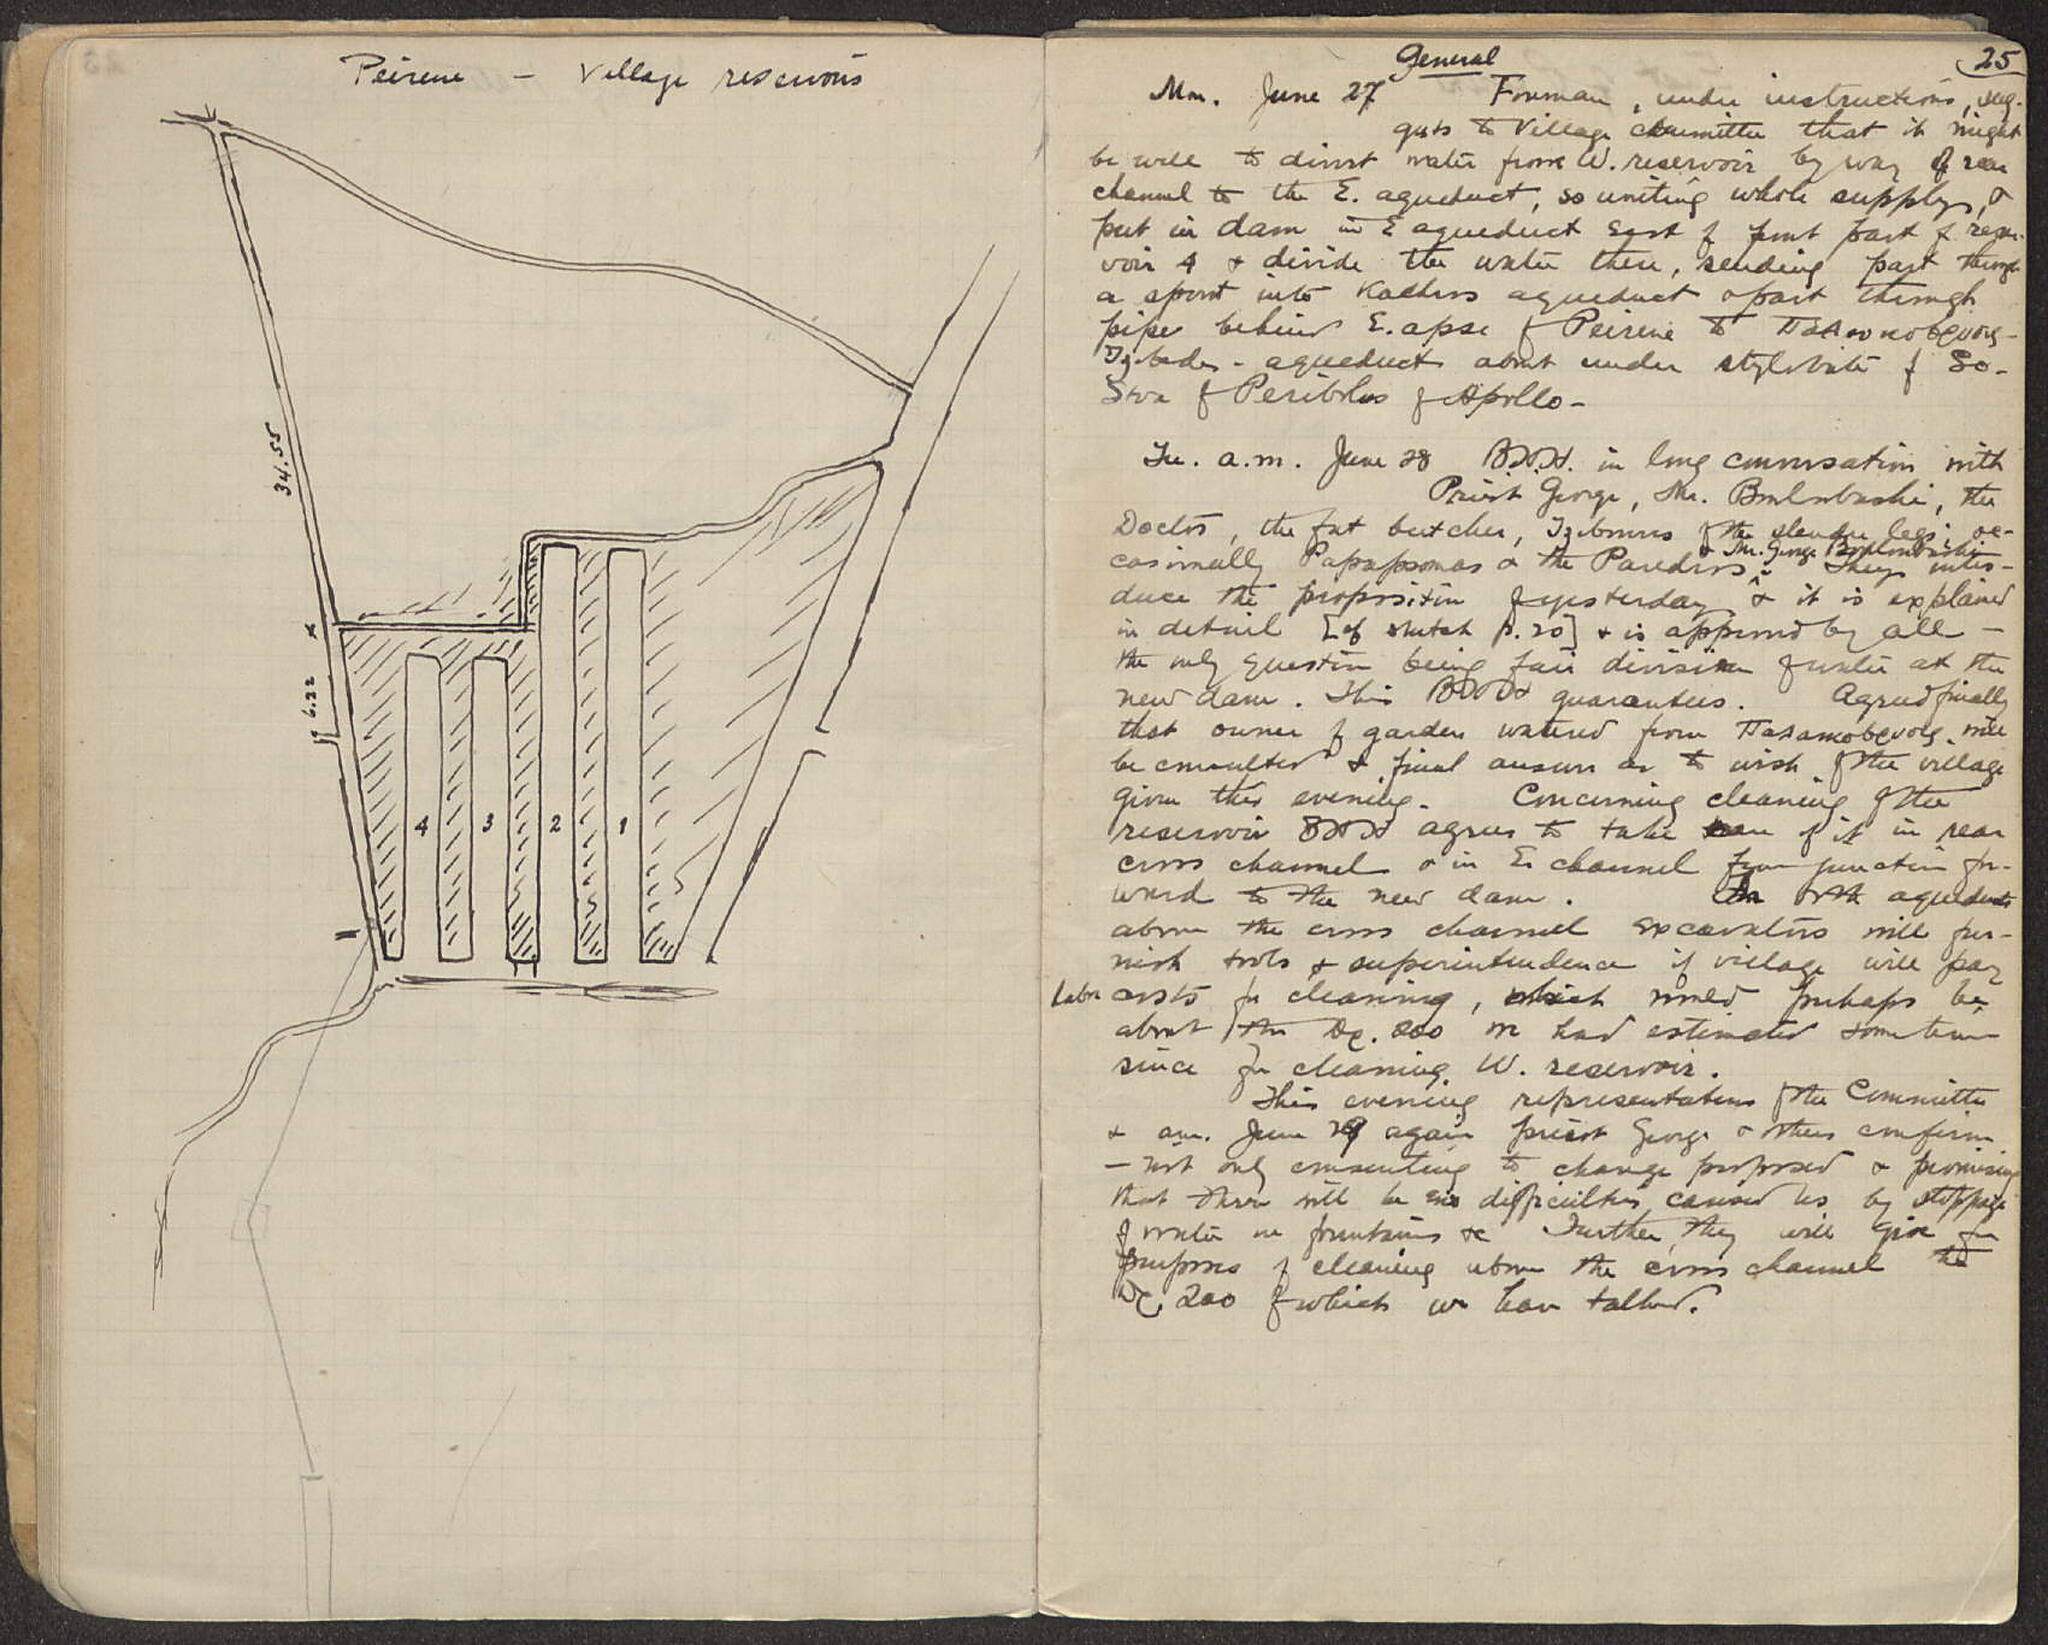 Peirene — Village reservoirs
34.55
x
6.22
4 3 2 1
General
25
Mon. June 27 Foreman, under instructions, sug-
gests to Village Committee that it might
be well to divert water from W. reservoir by way of rear
channel to the E. aqueduct, so uniting whole supply, &
put in dam in E aqueduct East of front part of reser-
voir 4 & divide the water there, sending part through
a spout into Kachros aqueduct & part through
pipe behind E. apse of Peirene to
aqueduct about under stylobate of So-
Stoa of Peribolos of Apollo —
Tu. a.m. June 28 B.H.H. in long conversation with
Priest George, Mr. Bouloubashi, the
Doctor, the fat butcher, of the slender legs, oc-
casionally Papapsomas & the Paredros
& Mr. George Bouloubashi
They intro-
duce the proposition of yesterday & it is explained
in detail [cf sketch p. 20] & is approved by all —
the only question being fair division of water at the
new dam. This BHH guarantees. Agreed finally
that owner of garden watered from will
be consulted & final answer as to wish of the village
given this evening. Concerning cleaning of the
reservoir BHH agrees to take care of it in rear
cross channel & in E. channel from junction for-
ward to the new dam. In both aqueducts
above the cross channel excavators will fur-
nish tools & superintendence if village will pay
Labor costs for cleaning, which would perhaps be
about the Dr. 200 we had estimated sometime
since for cleaning W. reservoir.
This evening representatives of the Committee
& a.m. June 29 again priest George & others confirm
— not only consenting to change proposed & promising
that there will be no difficulties caused us by stoppage
of water in fountains &c Further, they will give for
purposes of cleaning above the cross channel the
Dr. 200 of which we have talked.